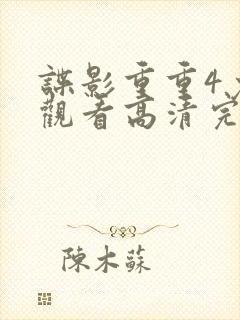 諜影重重4
觀看高清完
陳木蘇